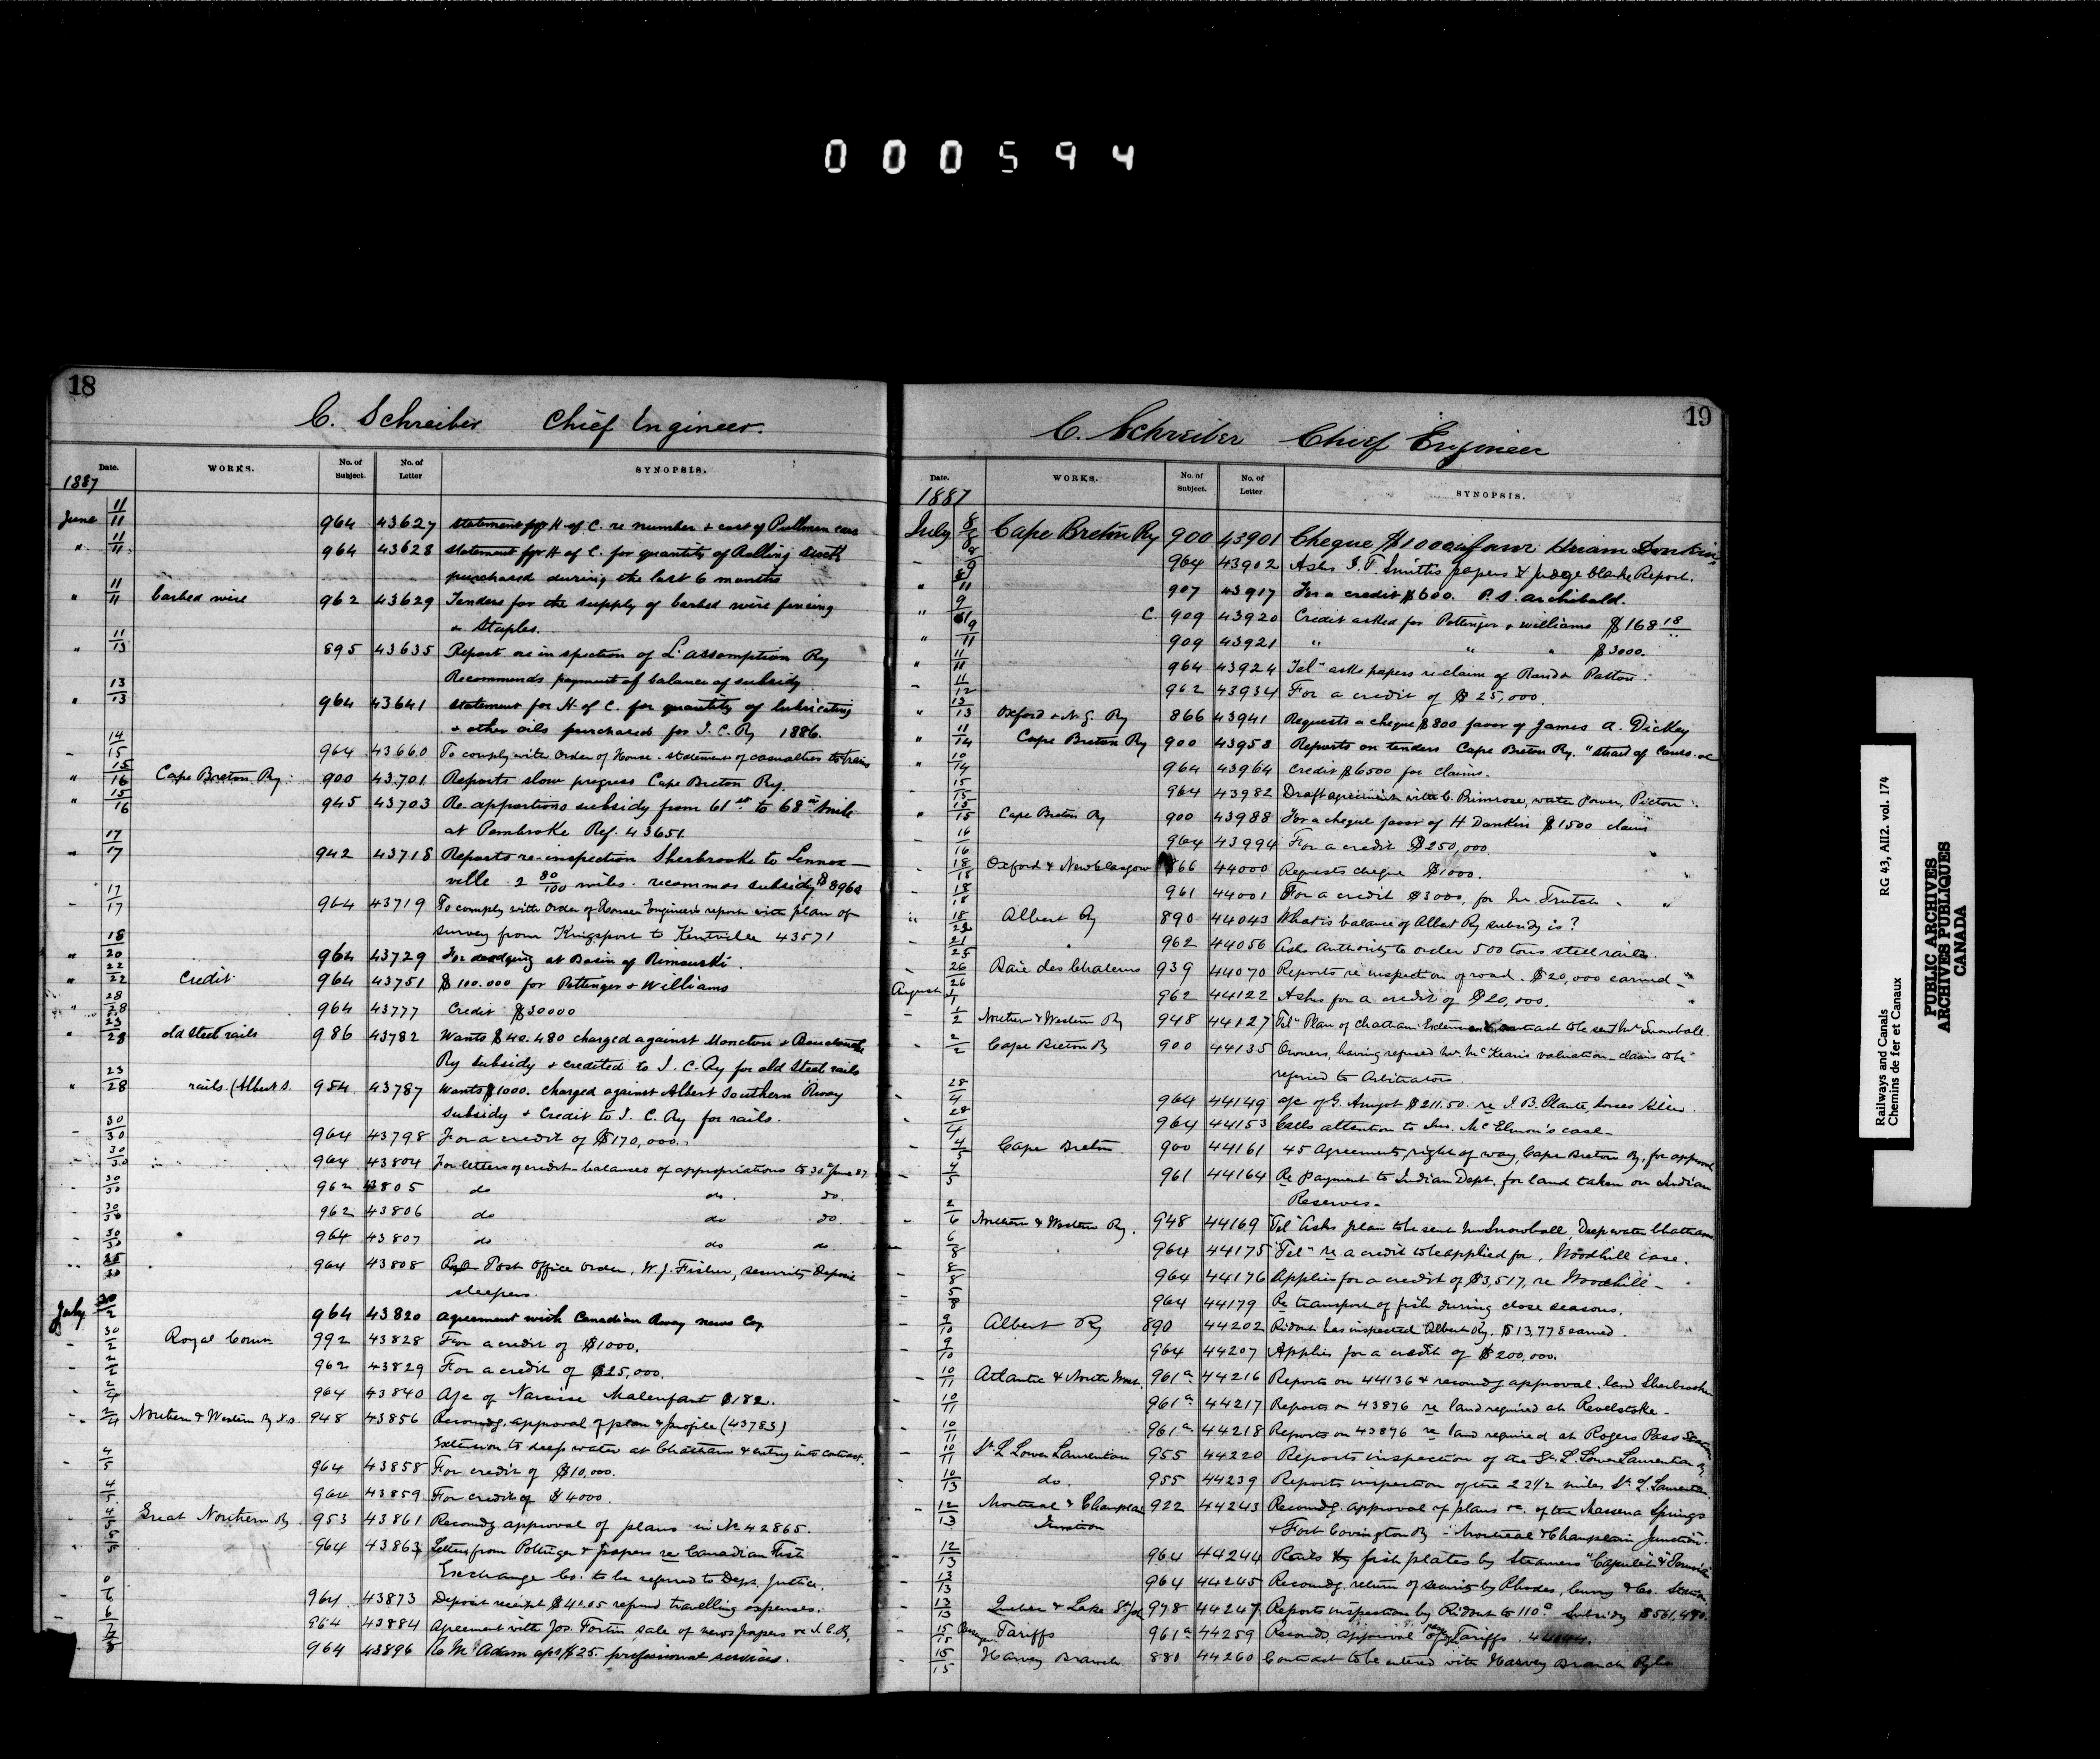 0 0 0 5 9 4
18
C. Schreiber Chief Engineer.
Date. WORKS. No. of Subject. No. of Letter SYNOPSIS.
1887
June 11/11 964 43627 Statement for H of C. re number + cost of Pullman cars
" 11/11 964 43628 Statement for H of C. for quantity of Rolling Stock
purchased during the last 6 months
" 11/11 barbed wire 962 43629 Tenders for the supply of barbed wire fencing
& Staples.
" 11/13 895 43635 Report re inspection of L'assomption Ry
Recommends payment of balance of subsidy
" 13/13 964 43641 Statement for H. of C. for quantity of lubricating
+ other oils purchased for I. C. Ry 1886.
- 14/15 964 43660 To comply with Order of House - statement of casualties to trains
" 15/16 Cape Breton Ry. 900 43701 Reports slow progress Cape Breton Ry.
" 15/16 945 43703 Re apportions subsidy from 61st to 68th mile
at Pembroke Ref. 43651.
" 17/17 942 43718 Reports re-inspection Sherbrooke to Lennox-
ville 2 80/100 miles. recommds subsidy $8960
- 17/17 964 43719 To comply with Order of House Engineer's report with plan of
survey from Kingsport to Kentville 43571
" 18/20 964 43729 For dredging at Basin of Rimouski.
" 22/22 Credit 964 43751 $100.000 for Pottinger & Williams
" 28/28 964 43777 Credit $30000
" 23/28 old steel rails 986 43782 Wants $40.480 charged against Moncton & Bouctouche
Ry subsidy & credited to I. C. Ry for old Steel rails
" 23/28 rails. (Albert S. 954 43787 Wants $1000. charged against Albert Southern Rway
subsidy & Credit to I. C. Ry for rails.
- 30/30 964 43798 For a credit of $170,000.
- 30/30 964 43804 For letters of credit - balances of appropriations to 30th June 87
- 30/30 962 43805 do do. do.
- 30/30 962 43806 do do do.
- 30/30 964 43807 do do do
964 43808 Post Office Order, W. J. Fisher, security deposit
sleepers.
July 30/2 964 43820 agreement with Canadian Rway news Coy
- 30/2 Royal Comn 992 43828 For a credit of $1000.
- 2/2 962 43829 For a credit of $25,000.
- 2/4 964 43840 A/c of Narcisse Malenfant $182.
- 2/4 Northern & Western Ry 948 43856 Recomdg. approval of plan & profile (43783)
Extension to deep water at Chatham & entry into contract.
- 4/5 964 43858 For credit of $10,000.
4/5 964 43859 For credit of $4000.
- 4/5 Great Northern Ry 953 43861 Recomdg approval of plans in No 42865.
5/5 964 43863 Letters from Pottinger & papers re Canadian Fish
Exchange Co. to be referred to Dept. Justice.
964 43873 Deposit receipt refund travelling expenses.
964 43884 Agreement with Jos. Fortin, sale of newspapers on I. C. Ry,
964 43896 $25. professional services.
19
C. Schreiber Chief Engineer
Date. WORKS. No. of Subject. No. of Letter. SYNOPSIS.
1887
July 8/8 Cape Breton Ry 900 43901 Cheque $1000 favor Hiram Donkin
964 43902 Asks papers & Judge Clarke Report.
" 907 43917 For a credit $600. P. S. Archibald.
" C. 909 43920 Credit asked for Pottinger & Williams $168 18
" 9/11 909 43921 " " " $3000.
11/11 964 43924 Tel" asks papers re claim of Rand & Patton.
- 11/12 962 43934 For a credit of $25,000.
" 13/13 Oxford & N. G. Ry 866 43941 Requests a cheque $800 favor of James A. Dickey
" 11/14 Cape Breton Ry 900 43958 Reports on tenders Cape Breton Ry. "Strait of Canso
" 10/14 964 43964 Credit $6500 for claims.
- 15/15 964 43982 Draft agreement with C. Primrose, water Power, Pictou
" 15/15 Cape Breton Ry 900 43988 For a cheque favor of H Donkin $1500 claims
- 16/16 964 43994 For a credit $250,000.
- 18/18 Oxford & New Glasgow 866 44000 Requests cheque $1000.
- 18/18 961 44001 For a credit $3000, for Mr. Trutch
" 18/22 Albert Ry 890 44043 What is balance of Albert Ry subsidy is?
- 21/25 962 44056 Asks Authority to order 500 tons steel rails.
- 26/26 Baie des Chaleurs 939 44070 Reports re inspection of road. $20,000 earned
August 1/1 962 44122 Asks for a credit of $20,000.
- 1/2 Northern & Western Ry 948 44127 Tel" Plan of Chatham Extension & contract to be sent Mr Snowball.
- 2/2 Cape Breton Ry 900 44135 Owners, having refused Mr. McKean's valuation - claims to be
referred to Arbitrators.
- 28/4 964 44149 a/c of G. Amyot $211.50. re J. B. Plante, horses killed.
- 28/4 964 44153 Calls attention to Mr. McElmon's case
- 4/5 Cape Breton 900 44161 45 Agreements, right of way, Cape Breton Ry. for approval
4/5 961 44164 Re payment to Indian Dept. for land taken on Indian
Reserves.
- 2/6 Northern & Western Ry. 948 44169 "Tel" Asks plan to be sent Mr Snowball, Deep water Chatham
- 6/8 964 44175 "Tel" re a credit to be applied for, Woodhill case.
- 8/8 964 44176 Applies for a credit of $3,517, re Woodhill
- 5/8 964 44179 Re transport of fish during close seasons.
- 9/10 Albert Ry 890 44202 Ridout has inspected Albert Ry. $13,778 earned.
9/10 964 44207 Applies for a credit of $200,000.
- 10/11 Atlantic & North West. 961a 44216 Reports on 44136 & recomdg approval. land Sherbrooke
- 10/11 961a 44217 Reports on 43876 re land required at Revelstoke.
10/11 961a 44218 Reports on 43876 re land required at Rogers Pass Station
- 10/11 St. L Lower Laurentian 955 44220 Reports inspection of the St. L. Lower Laurentian Ry
- 10/13 do. 955 44239 Reports inspection of the 22 1/2 miles St. L. Laurentian
- 12/13 Montreal & Champlain Junction 922 44243 Recomdg. approval of plans &c. of the Massena Springs
& Fort Covington Ry - Montreal & Champlain Junction.
- 12/13 964 44244 Rails & fish plates by Steamers "Capulet" &
- 13/13 964 44245 Recomdg. return of security by Rhodes, Curry & Co.
- 13/13 Quebec & Lake St John 978 44247 Reports inspection by Ridout to 110th. Subsidy
- 15/15 Passenger Tariffs 961a 44259 Recomds, approval of Tariffs.
- 15/15 Harvey Branch 880 44260 Contract to be entered with Harvey Branch
Railways and Canals RG 43, AII2. vol. 174
Chemins de fer et Canaux
PUBLIC ARCHIVES
ARCHIVES PUBLIQUES
CANADA